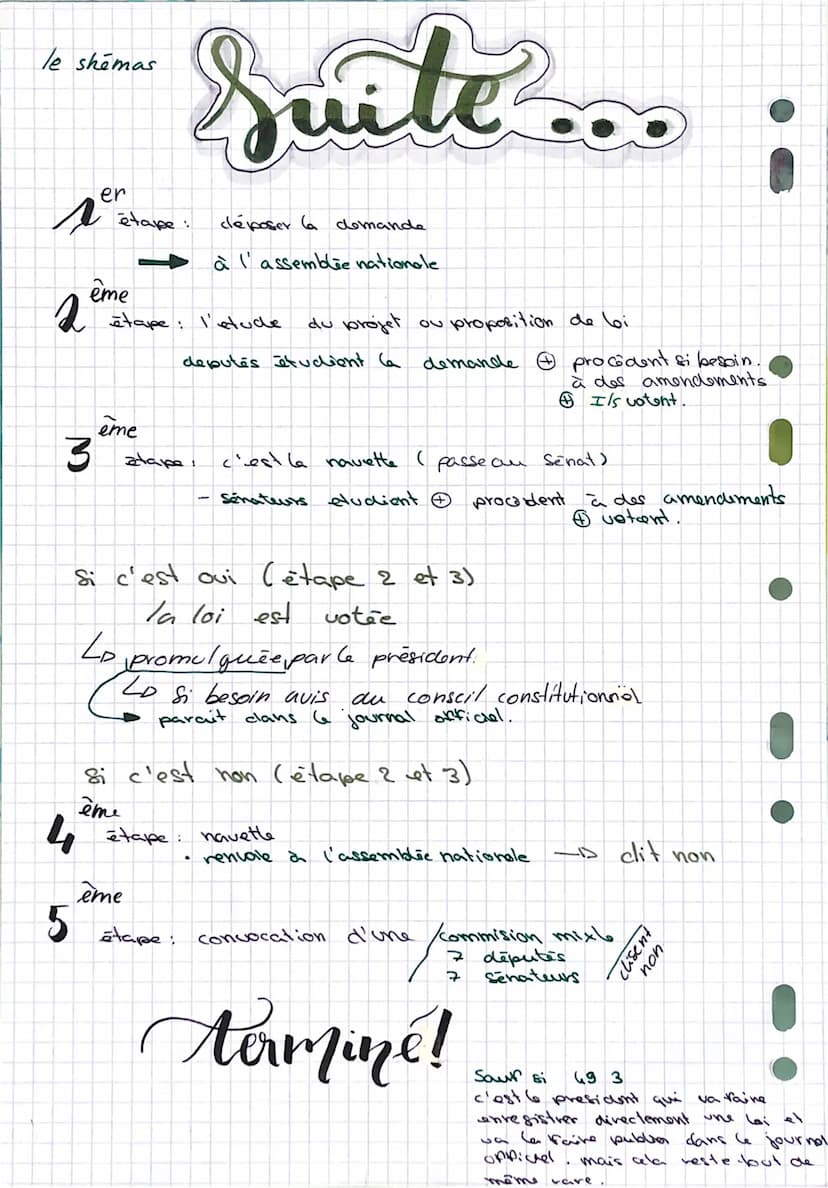 le shémas
Suite...
1er étape : déposer la demande
→ à l'assemblée nationale
2ème étape : l'etude du projet ou proposition de loi
deputés étudiont la demande ⊕ procèdent si besoin.
à des amendements
⊕ Ils votent.
3ème étape : c'est la navette ( passe au Sénat )
- Sénateurs etudient ⊕ procèdent à des amendements
⊕ votent.
Si c'est oui ( étape 2 et 3 )
la loi est votée
↳ promulguée par le président.
↳ Si besoin avis du conseil constitutionnel
→ parait dans le journal officiel.
Si c'est non ( étape 2 et 3 )
4ème étape : navette
• renvoie à l'assemblée nationale → dit non
5ème étape : convocation d'une commision mixte
7 députés
7 sénateurs
disent non
terminé !
Sauf si 49 3
c'est le president qui va faire
enregistrer directement une loi et
va la faire publier dans le journal
officiel. mais cela reste tout de
même rare.